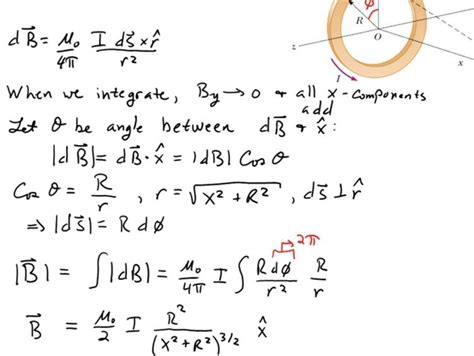 dB⃗ = μ₀/4π I ds⃗ × r̂ / r²
When we integrate, By → 0 & all x-components
add
Let θ be angle between dB⃗ & x̂ :
|dB⃗| = dB⃗ · x̂ = |dB| Cos θ
Cos θ = R/r , r = √(x² + R²) , ds⃗ ⊥ r̂
⇒ |ds⃗| = R dϕ
→ 2π
|B⃗| = ∫|dB| = μ₀/4π I ∫ R dϕ / r² R/r
B⃗ = μ₀/2 I R² / (x² + R²)^3/2 x̂
ϕ
R
O
z
x
I